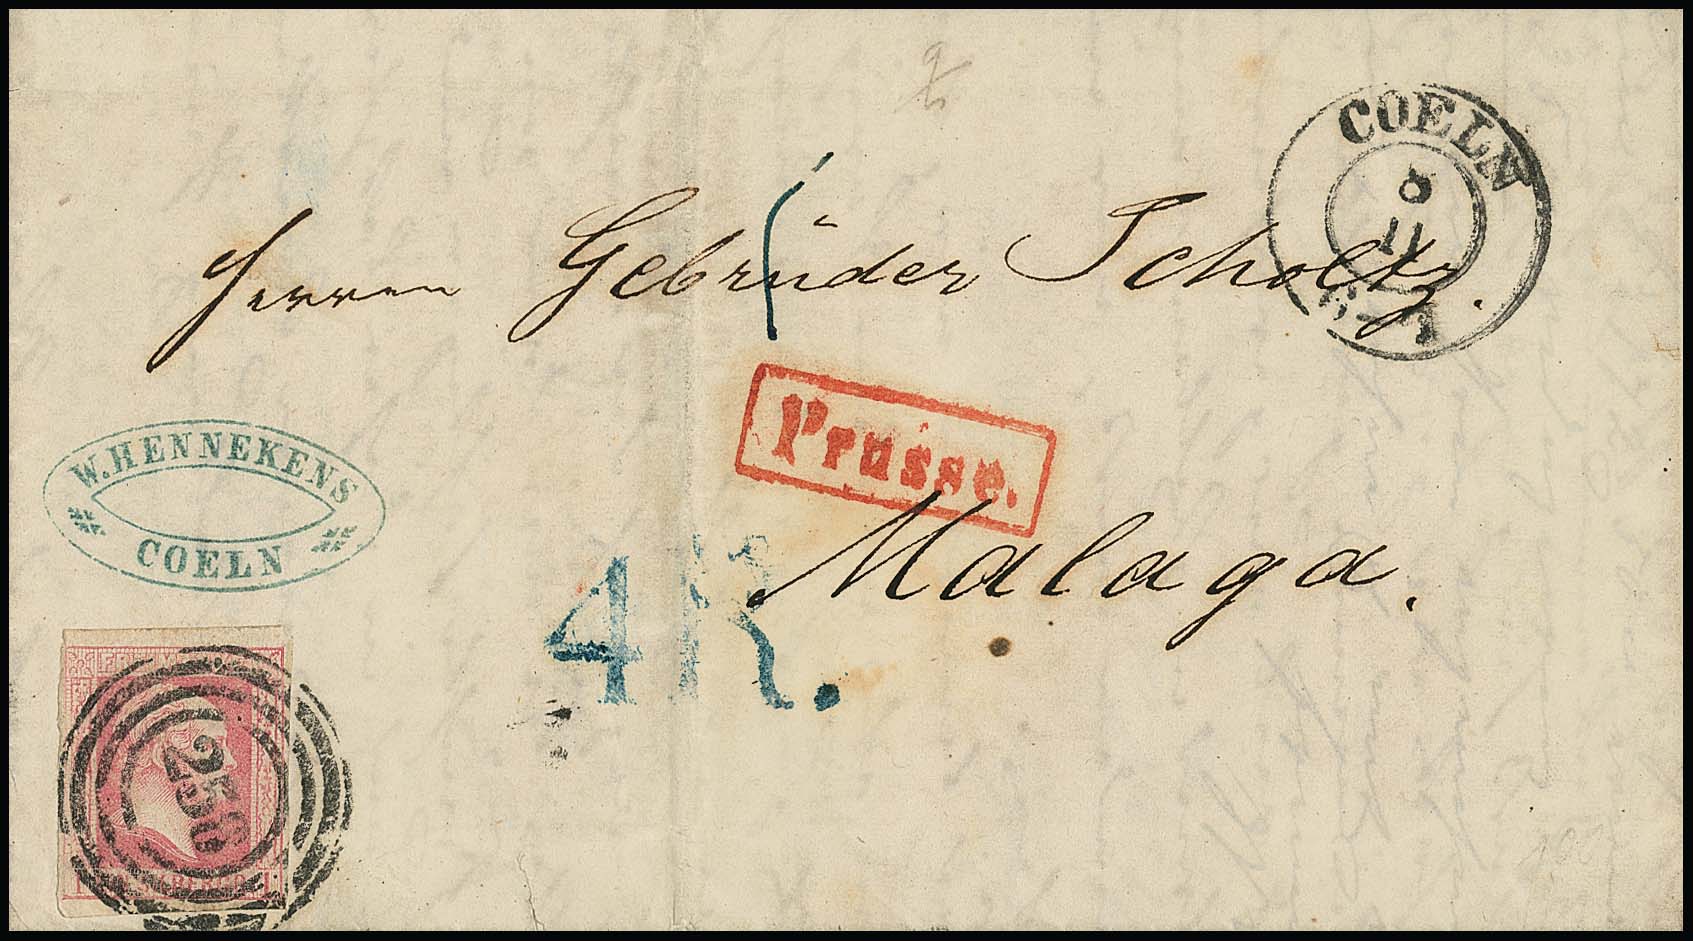 COELN
8
11
6-7
Herren Gebrüder Scholtz.
Prusse.
W. HENNEKENS
COELN
Malaga.
4R.
256
1 SILBERGR. 1